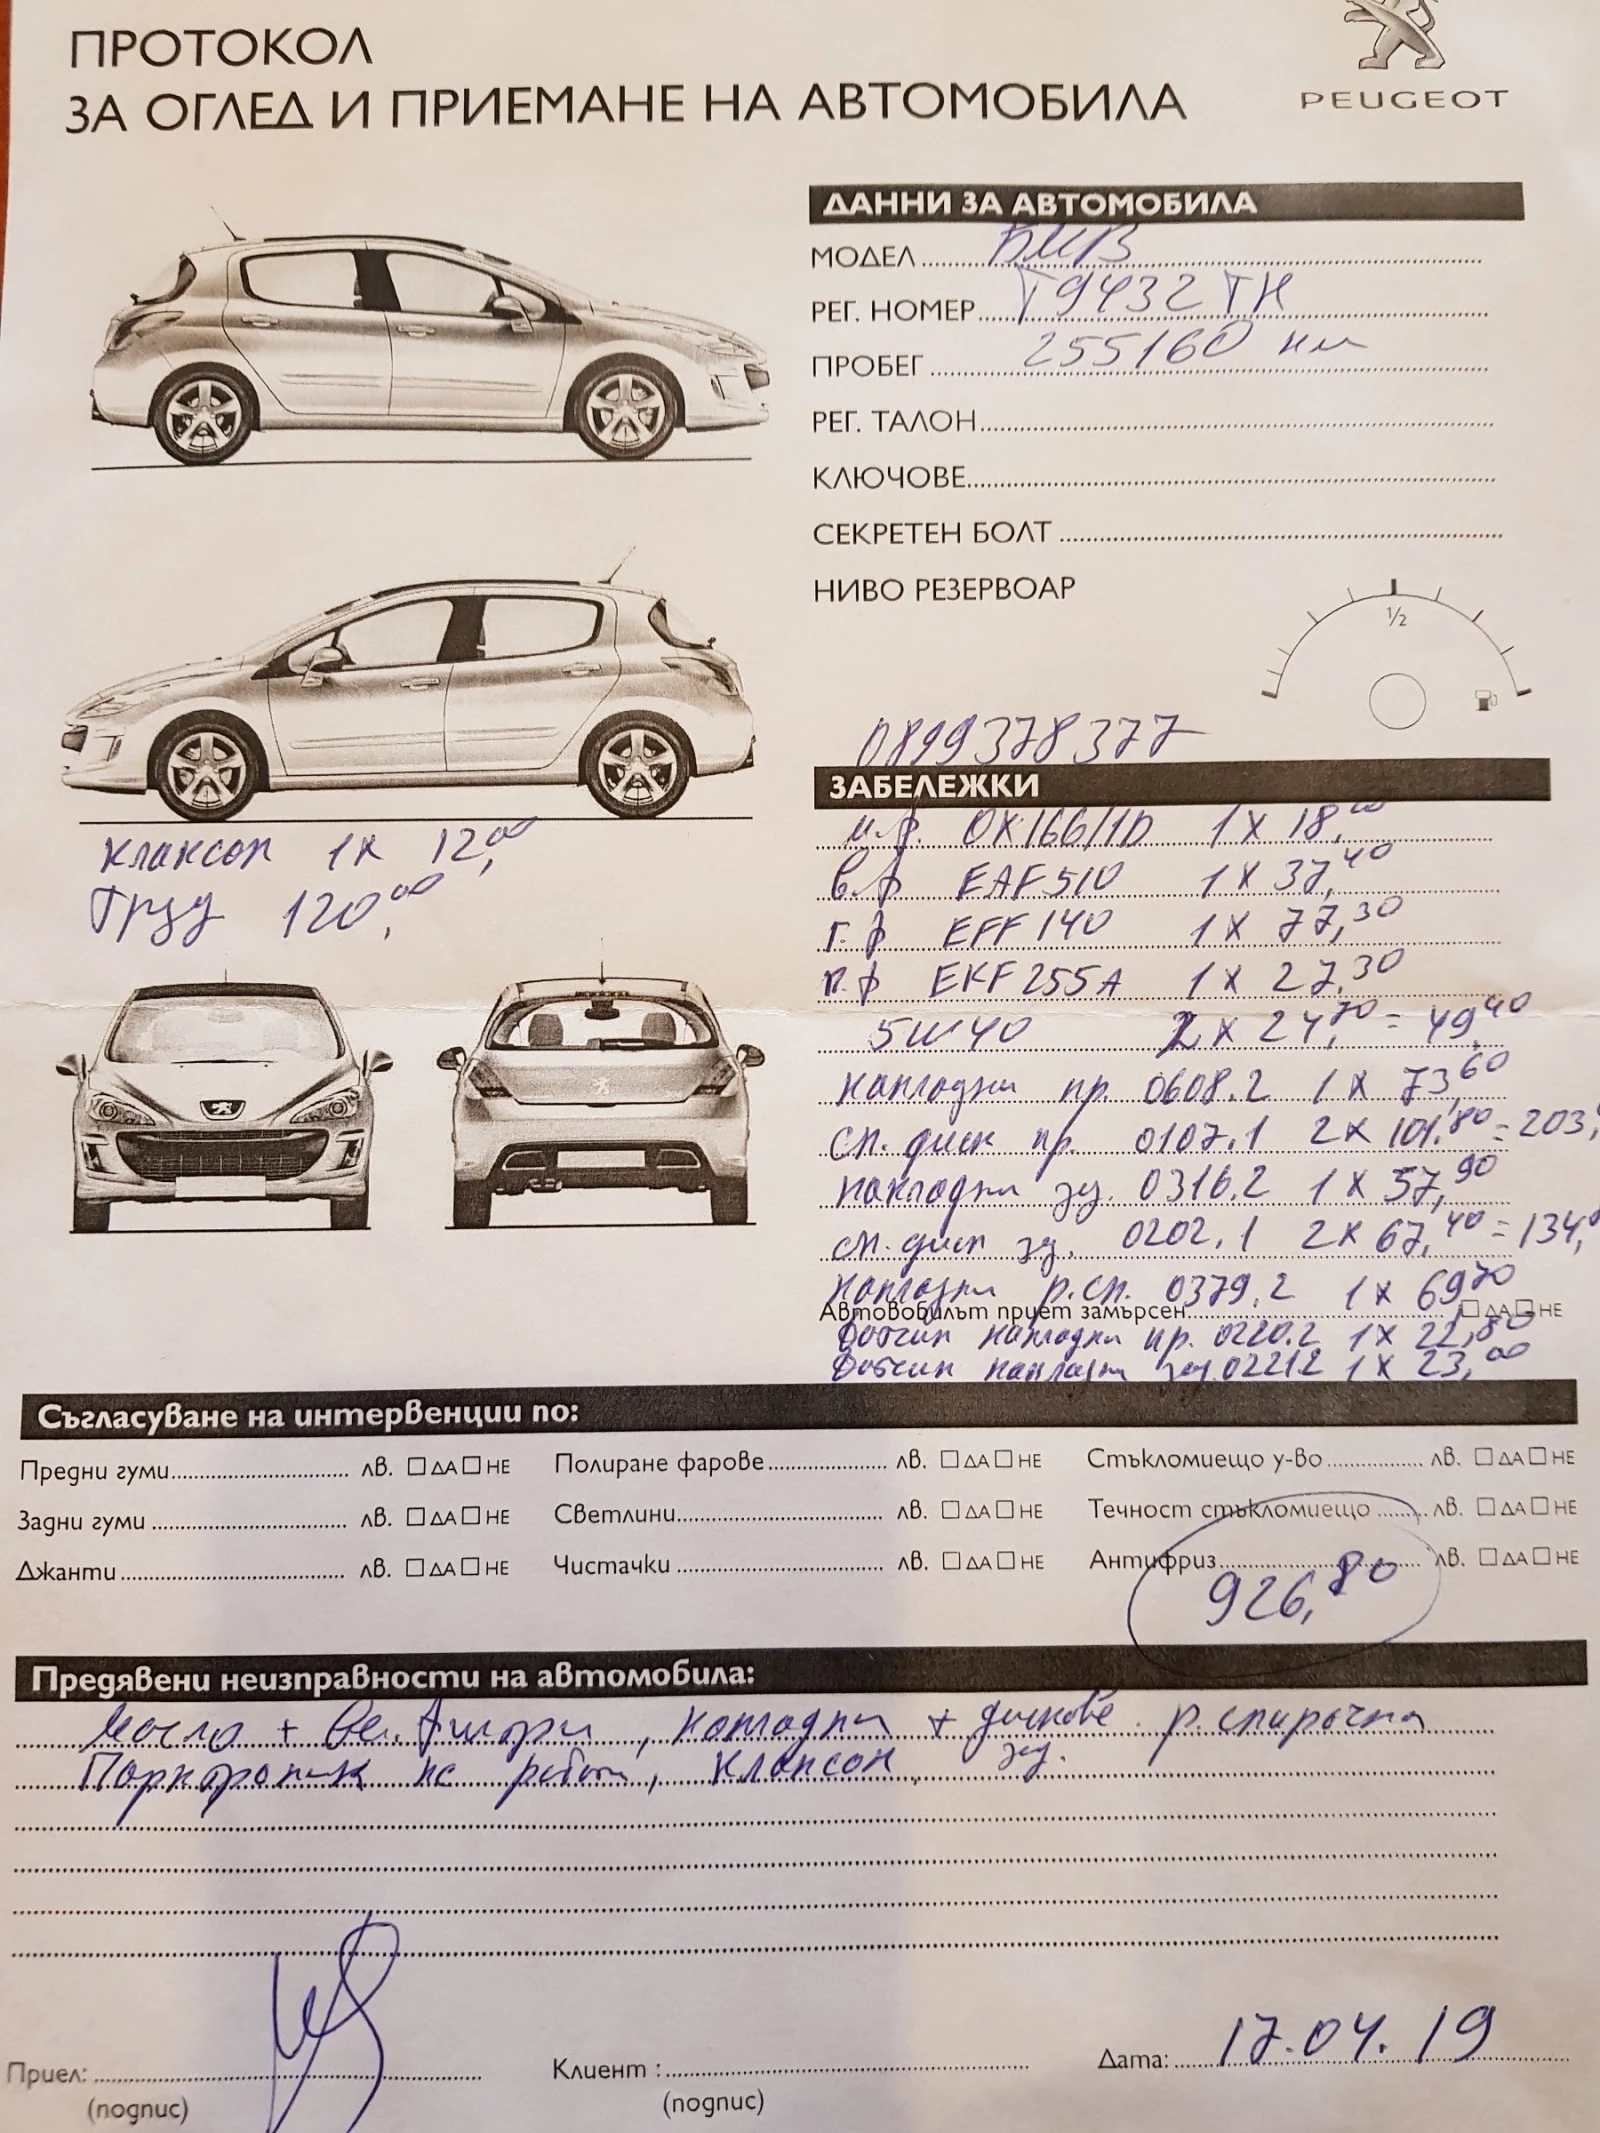 ПРОТОКОЛ
ЗА ОГЛЕД И ПРИЕМАНЕ НА АВТОМОБИЛА
PEUGEOT
ДАННИ ЗА АВТОМОБИЛА
МОДЕЛ БМВ
РЕГ. НОМЕР Т9432ТН
ПРОБЕГ 255160 км
РЕГ. ТАЛОН
КЛЮЧОВЕ
СЕКРЕТЕН БОЛТ
НИВО РЕЗЕРВОАР
1/2
0899378377
ЗАБЕЛЕЖКИ
м.ф. OX166/1D 1 x 18,00
в.ф EAF510 1 x 37,40
г.ф EFF140 1 x 77,30
п.ф EKF255A 1 x 27,30
5W40 2 x 24,70 = 49,40
накладки пр. 0608.2 1 x 73,60
сп. диск пр. 0107.1 2 x 101,80 = 203,
накладки зд. 0316.2 1 x 57,90
сп. диск зд. 0202.1 2 x 67,40 = 134,
накладки р.сп. 0379.2 1 x 69,70
Автовобилът приет замърсен ДА НЕ
Датчик накладки пр. 0220.2 1 x 22,80
Датчик накладки зад. 0221.2 1 x 23,00
Клаксон 1 x 12,00
Труд 120,00
Съгласуване на интервенции по:
Предни гуми лв. ДА НЕ Полиране фарове лв. ДА НЕ Стъкломиещо у-во лв. ДА НЕ
Задни гуми лв. ДА НЕ Светлини лв. ДА НЕ Течност стъкломиещо лв. ДА НЕ
Джанти лв. ДА НЕ Чистачки лв. ДА НЕ Антифриз лв. ДА НЕ
926,80
Предявени неизправности на автомобила:
Масло + вс. Филтри, накладки + дискове р. спирачка
Парктроник не работи, клаксон зд.
Приел: Клиент : Дата: 17.04.19
(подпис) (подпис)